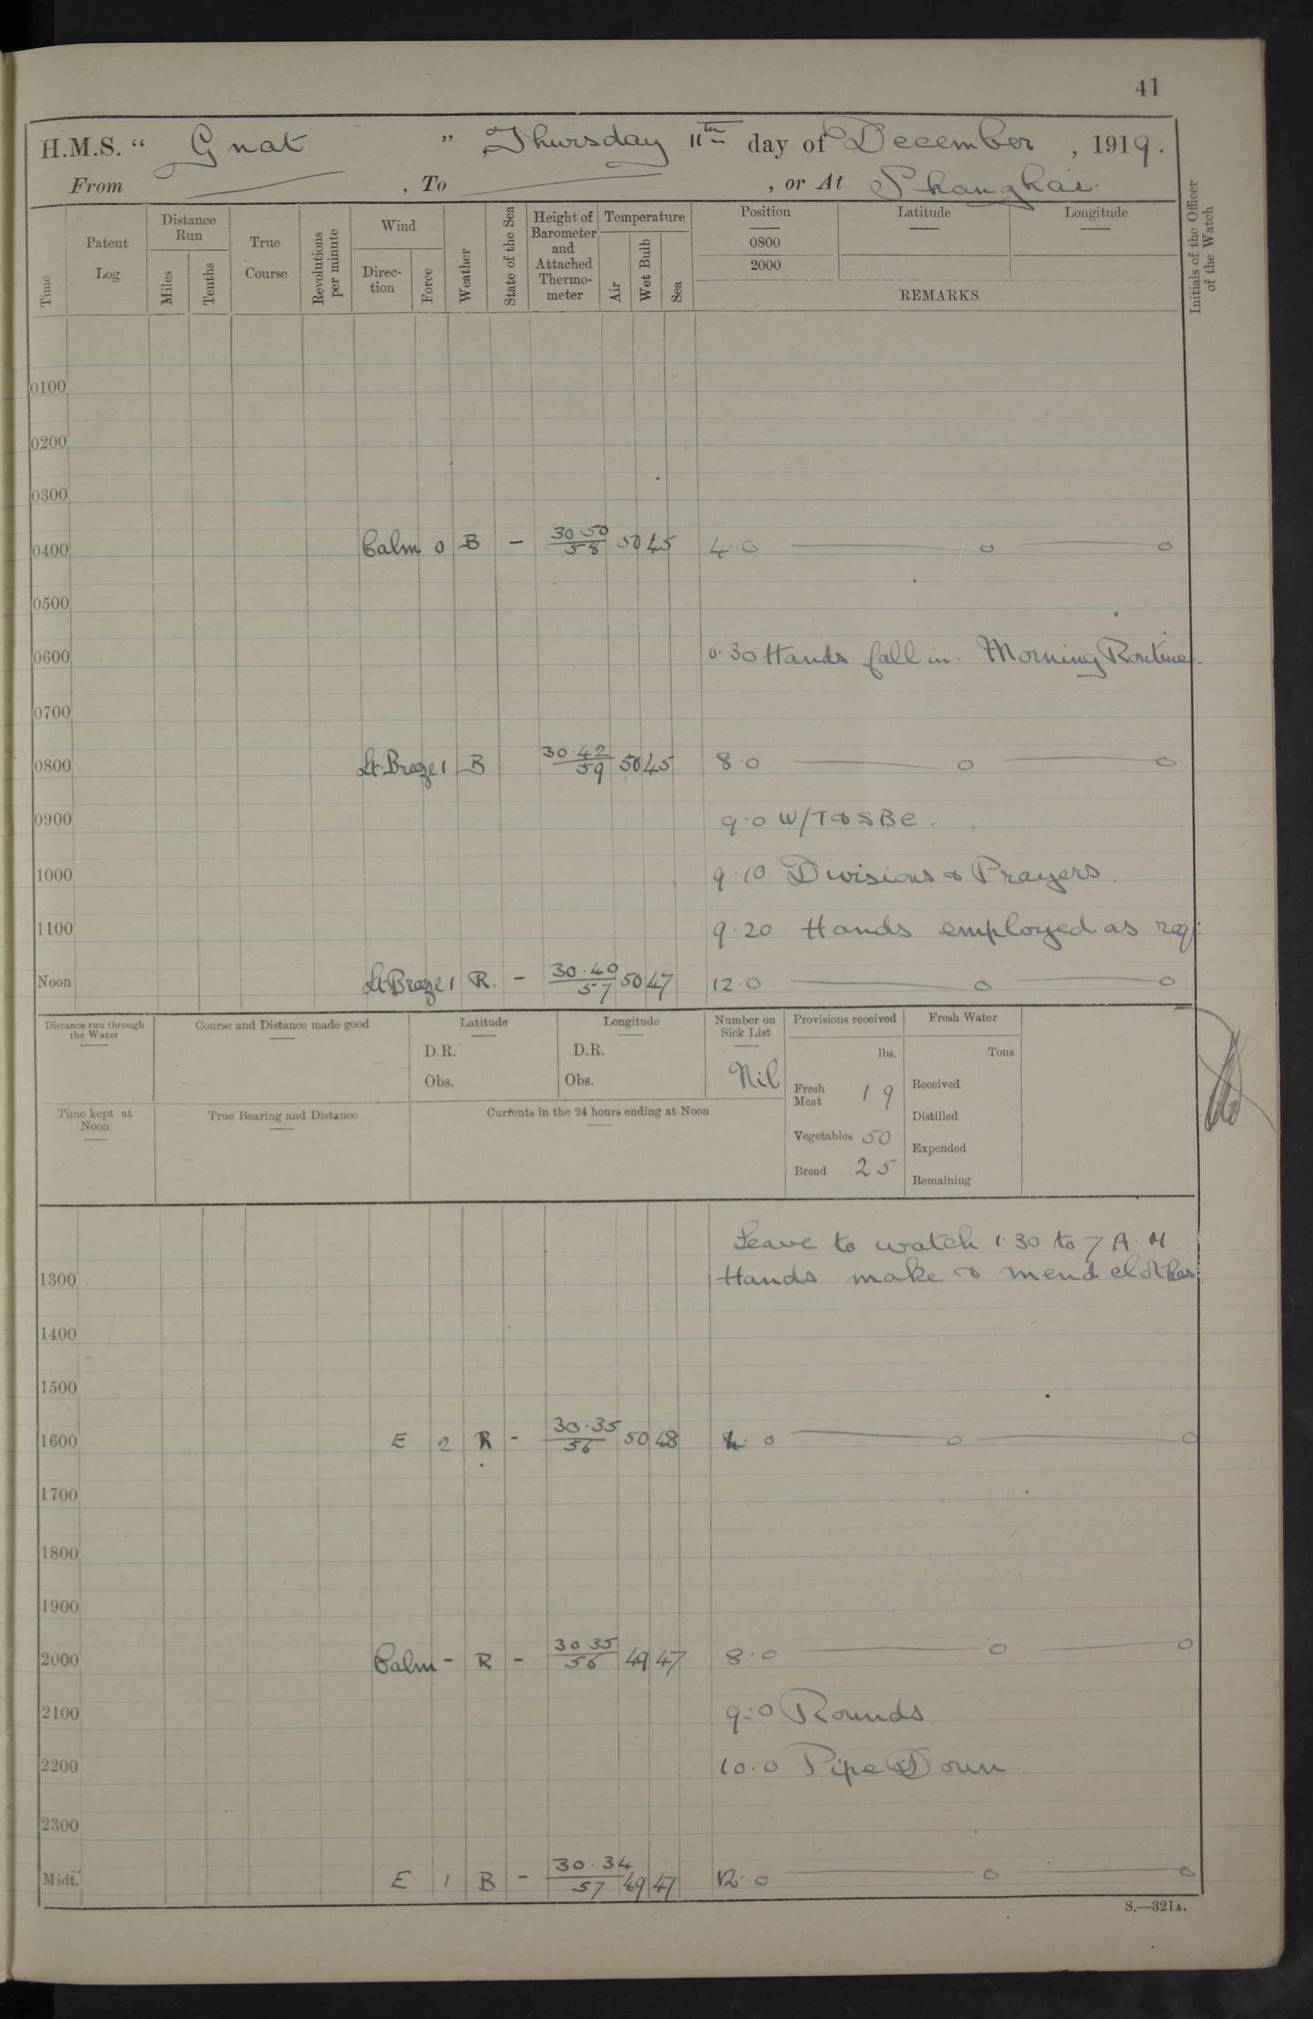 41
H.M.S. "Gnat" Thursday 11th day of December, 1919.
From ———, To ———, or At Shanghai.
Time
Patent Log
Distance Run
Miles
Tenths
True Course
Revolutions per minute
Wind
Direction
Force
Weather
State of the Sea
Height of Barometer and Attached Thermometer
Temperature
Air
Wet Bulb
Sea
Position
0800
2000
Latitude
Longitude
REMARKS
Initials of the Officer of the Watch
0100
0200
0300
0400 Calm 0 B - 30.50/58 50 45 4.0 —— 0 —— 0
0500
0600 6.30 Hands fall in. Morning Routine.
0700
0800 Lt. Breeze 1 B 30.42/59 50 45 8.0 —— 0 —— 0
0900 9.0 W/T & SBE.
1000 9.10 Divisions & Prayers.
1100 9.20 Hands employed as req.
Noon Lt Breeze 1 R. - 30.40/57 50 47 12.0 —— 0 —— 0
Distance run through the Water
Course and Distance made good
Latitude
D.R.
Obs.
Longitude
D.R.
Obs.
Number on Sick List
Nil
Provisions received
lbs.
Fresh Meat 19
Vegetables 50
Bread 25
Fresh Water
Tons
Received
Distilled
Expended
Remaining
Time kept at Noon
True Bearing and Distance
Currents in the 24 hours ending at Noon
Leave to watch 1.30 to 7 A.M.
1300 Hands make & mend clothes.
1400
1500
1600 E 2 R - 30.35/56 50 48 4. 0 —— 0 —— 0
1700
1800
1900
2000 Calm - R - 30 35/56 49 47 8.0 —— 0 —— 0
2100 9.0 Rounds
2200 10.0 Pipe Down
2300
Midt. E 1 B - 30.34/57 49 47 12.0 —— 0 —— 0
S.—321A.